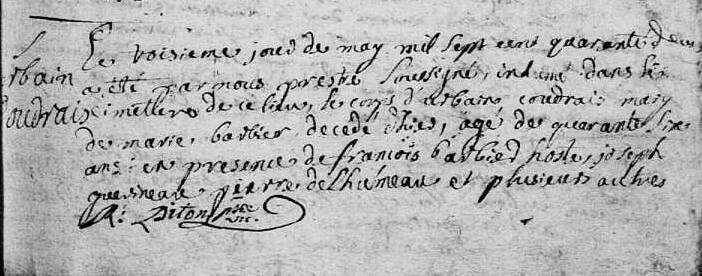 Le troisieme jour de may mil sept cent quarante deux
Urbain a été par nous prestre soussigné, inhumé dans le
Coudrais cimettere de ce lieu, le corps d'urbain coudrais mary
de marie barbier decedé d'hier, agé de quarante six
ans: en presence de francois barbier hoste, joseph
quesneau, pierre delhumeau et plusieurs autres
Piton